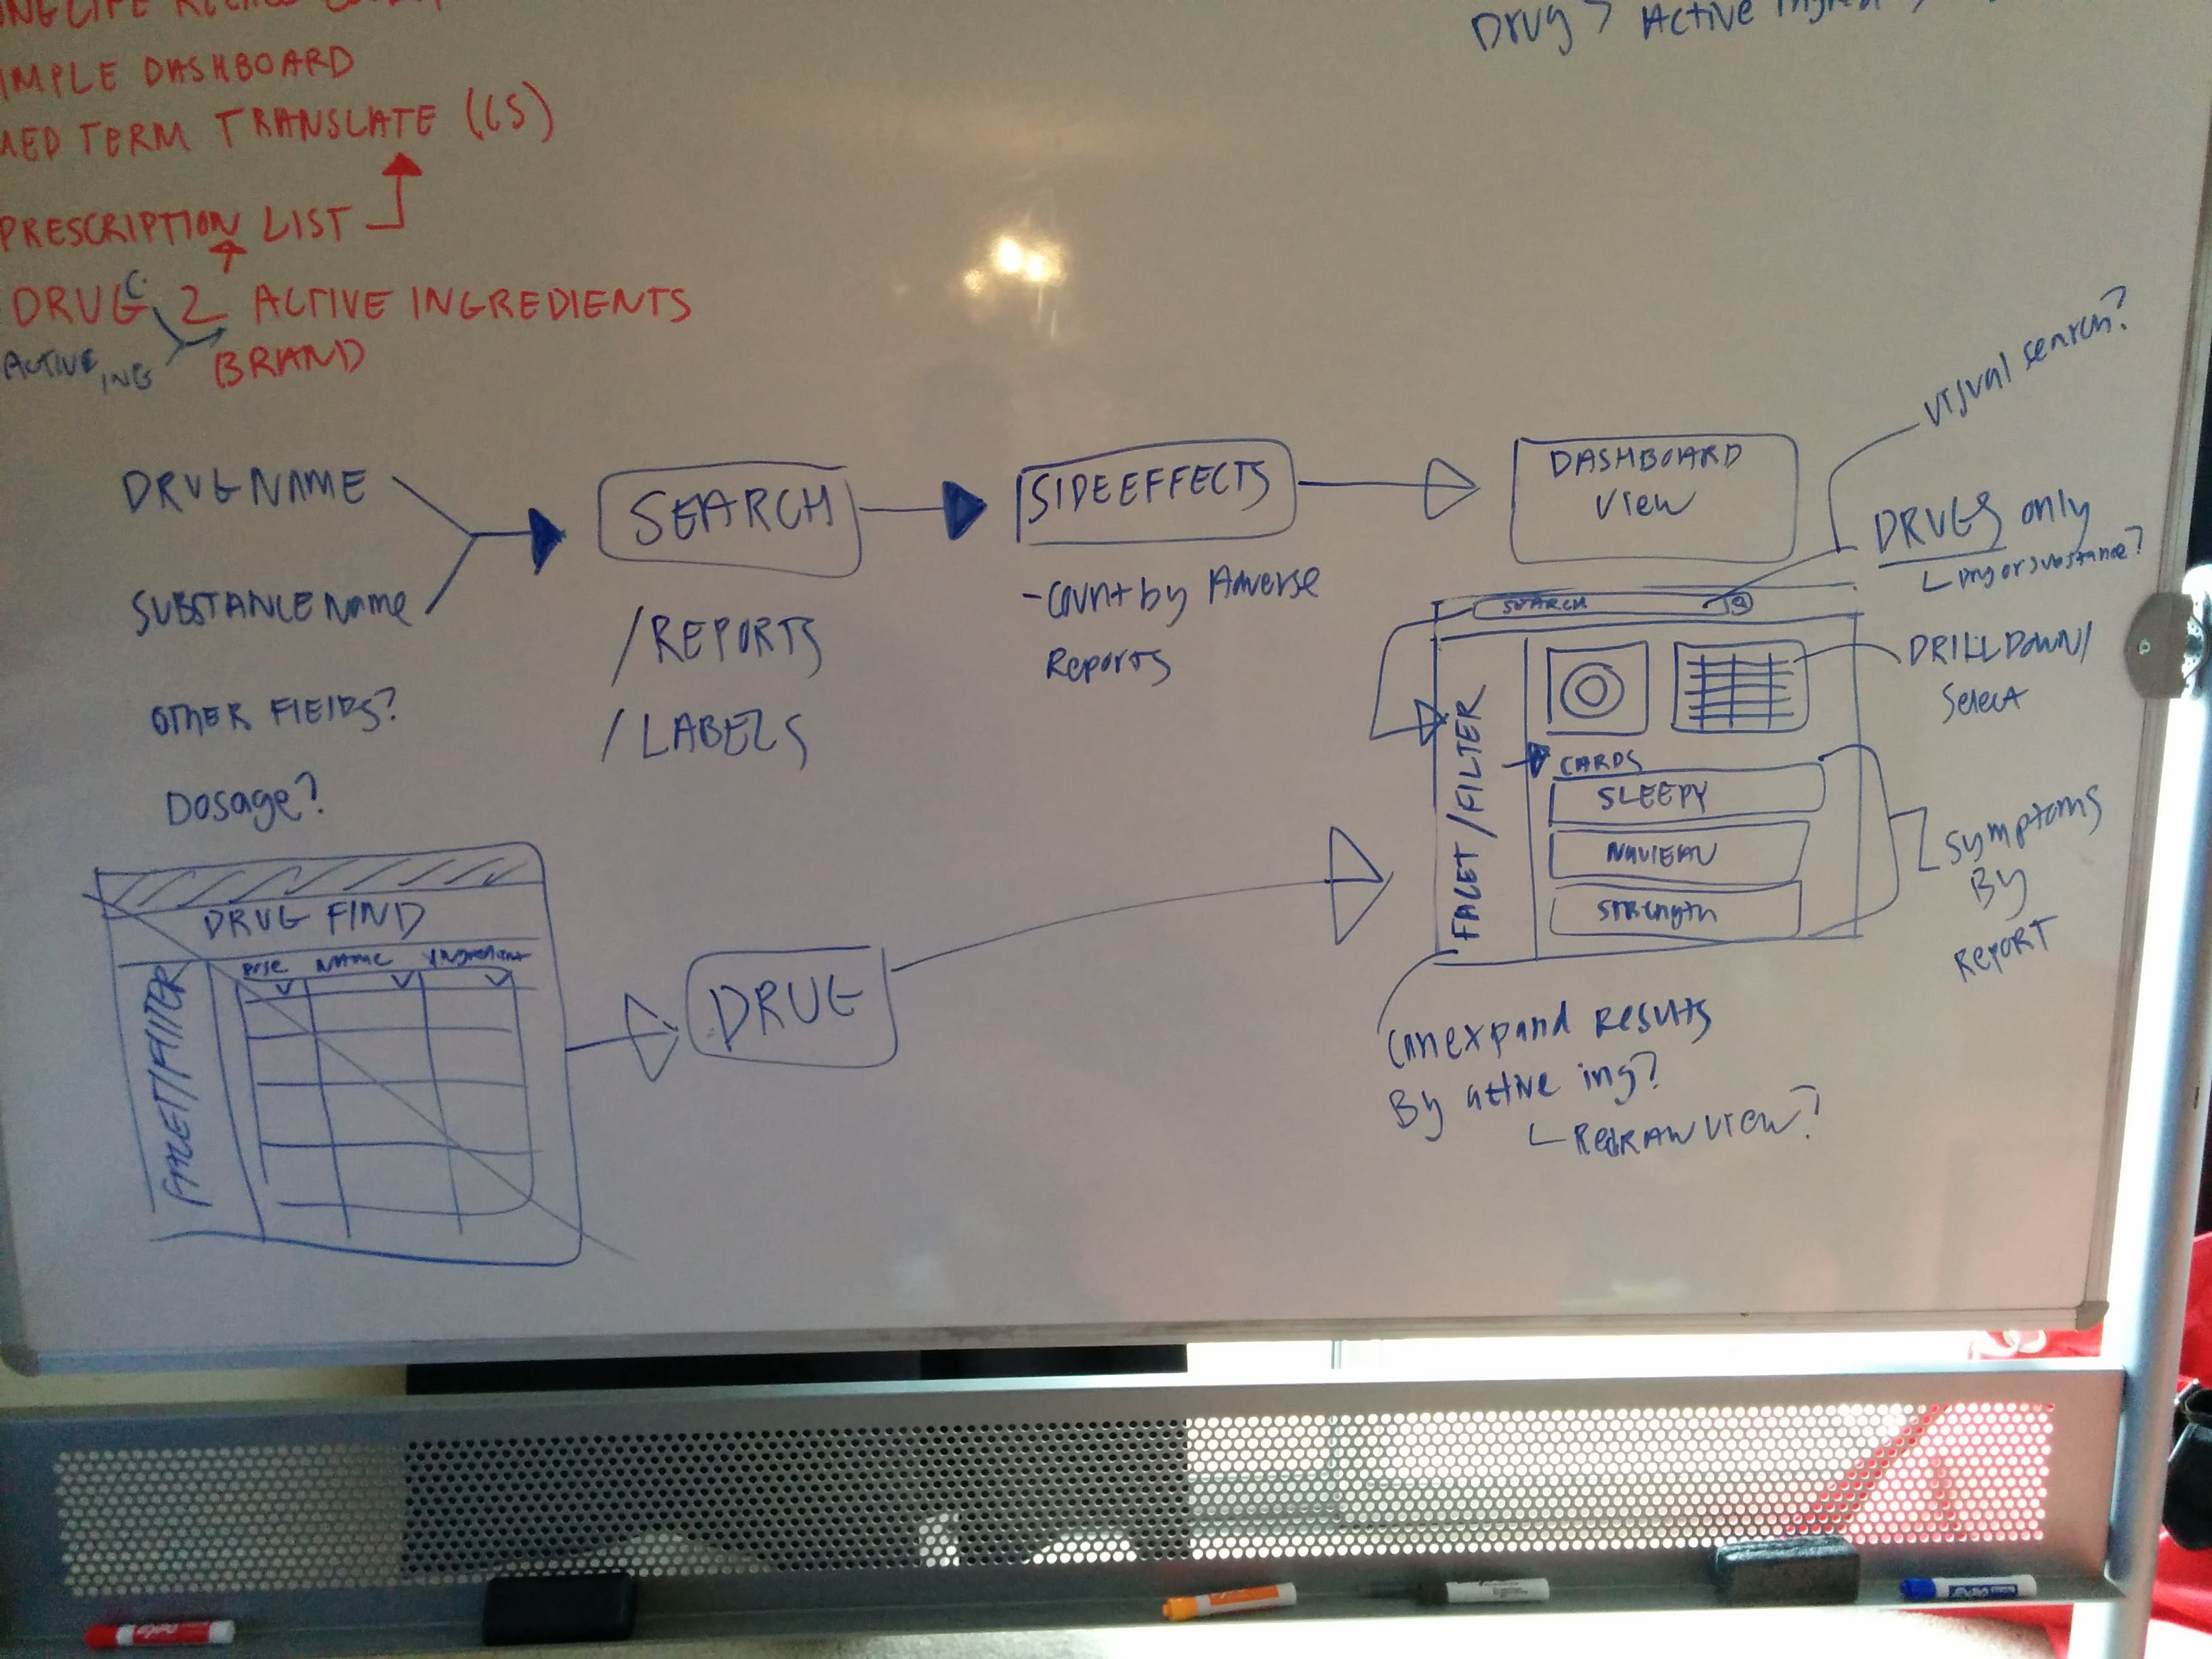 IMPLE DASHBOARD
MED TERM TRANSLATE (CS)
PRESCRIPTION LIST
DRUG 2 ACTIVE INGREDIENTS
ACTIVE ING
BRAND
Drug > Active
DRUG NAME
SUBSTANCE Name
OTHER FIELDS?
Dosage?
SEARCH
/REPORTS
/LABELS
SIDE EFFECTS
- Count by Adverse
Reports
DASHBOARD
View
visual search?
DRUGS only
Drug or substance?
SEARCH
DRILLDOWN/
Select
FACET/FILTER
CARDS
SLEEPY
Strength
Symptoms
By
Report
Can expand Results
By active ing?
Redraw view?
DRUG FIND
NAME Ingredient
FACET/FILTER
DRUG